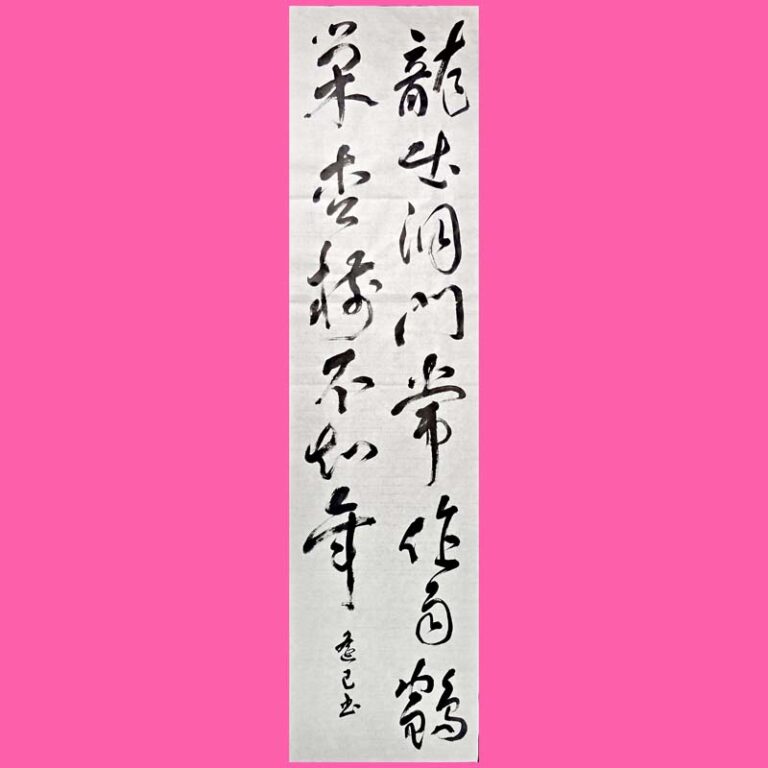 龍出洞門常作雨鶴
巢枩樹不知年
書